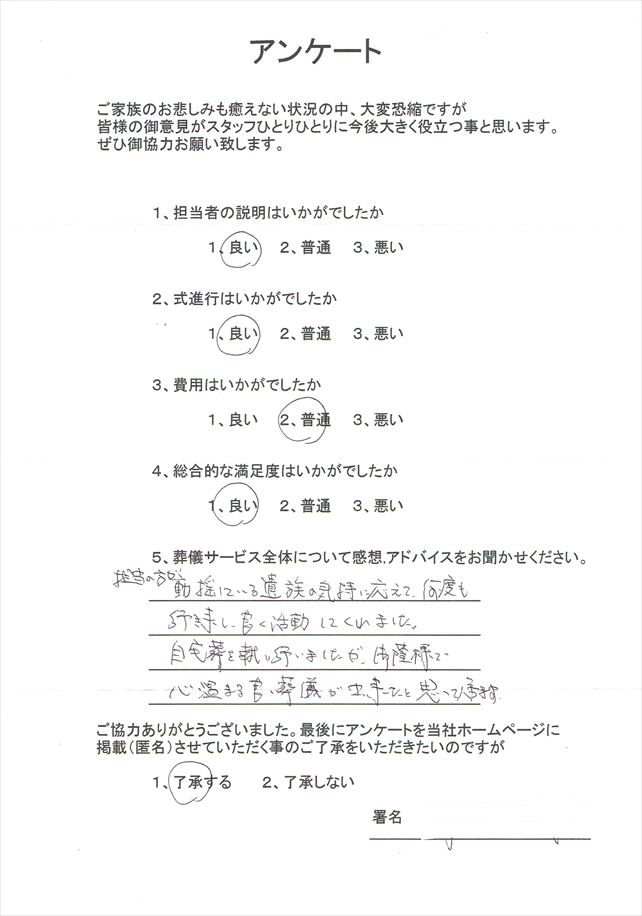 アンケート
ご家族のお悲しみも癒えない状況の中、大変恐縮ですが
皆様の御意見がスタッフひとりひとりに今後大きく役立つ事と思います。
ぜひ御協力お願い致します。
1、担当者の説明はいかがでしたか
1、良い 2、普通 3、悪い
2、式進行はいかがでしたか
1、良い 2、普通 3、悪い
3、費用はいかがでしたか
1、良い 2、普通 3、悪い
4、総合的な満足度はいかがでしたか
1、良い 2、普通 3、悪い
5、葬儀サービス全体について感想,アドバイスをお聞かせください。
担当の方が
動揺している遺族の気持に応えて、何度も
行き来し、良く活動してくれました。
自宅葬を執り行いましたが、御蔭様で
心温まる良い葬儀が出来たと思って居ます。
ご協力ありがとうございました。最後にアンケートを当社ホームページに
掲載(匿名)させていただく事のご了承をいただきたいのですが
1、了承する 2、了承しない
署名